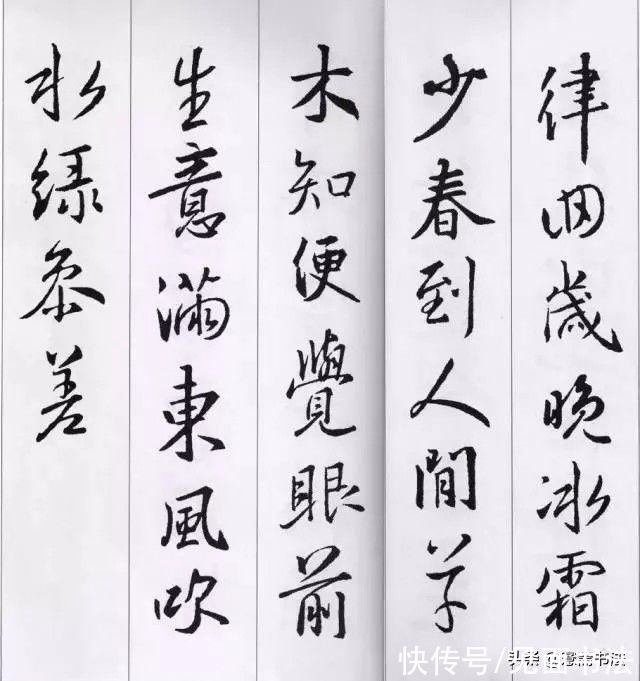 律回歲晚冰霜
少春到人間草
木知便覺眼前
生意滿東風吹
水綠參差
快传号/